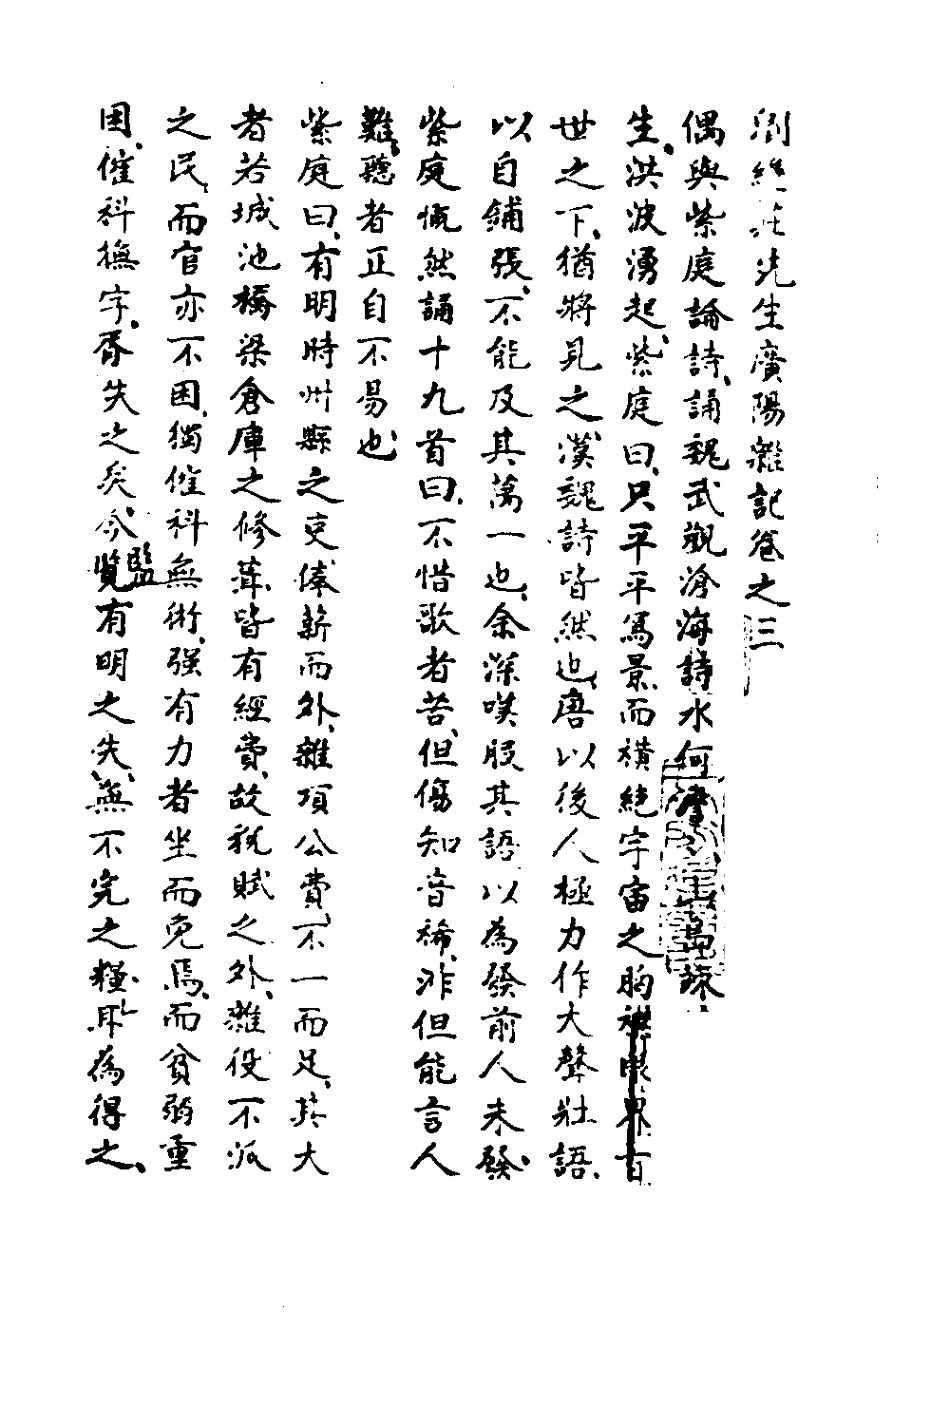 劉繼莊先生廣陽雜記卷之三
偶與紫庭論詩、誦魏武觀滄海詩水何澹澹山島竦
生、洪波湧起、紫庭曰、只平平寫景、而橫絕宇宙之胸襟眼界百
世之下、猶將見之、漢魏詩皆然也、唐以後人極力作大聲壯語、
以自鋪張、不能及其萬一也、余深嘆服其語、以為發前人未發、
紫庭慨然誦十九首曰、不惜歌者苦、但傷知音稀、非但能言人
難、聽者正自不易也、
紫庭曰、有明時州縣之吏俸薪而外、雜項公費、不一而足、其大
者若城池橋梁倉庫之修葺、皆有經費、故稅賦之外、雜役不派
之民、而官亦不困、獨催科無術、强有力者坐而免焉、而貧弱重
困、催科撫字、胥失之矣、今覽監有明之失、無不完之糧、耳為得之、